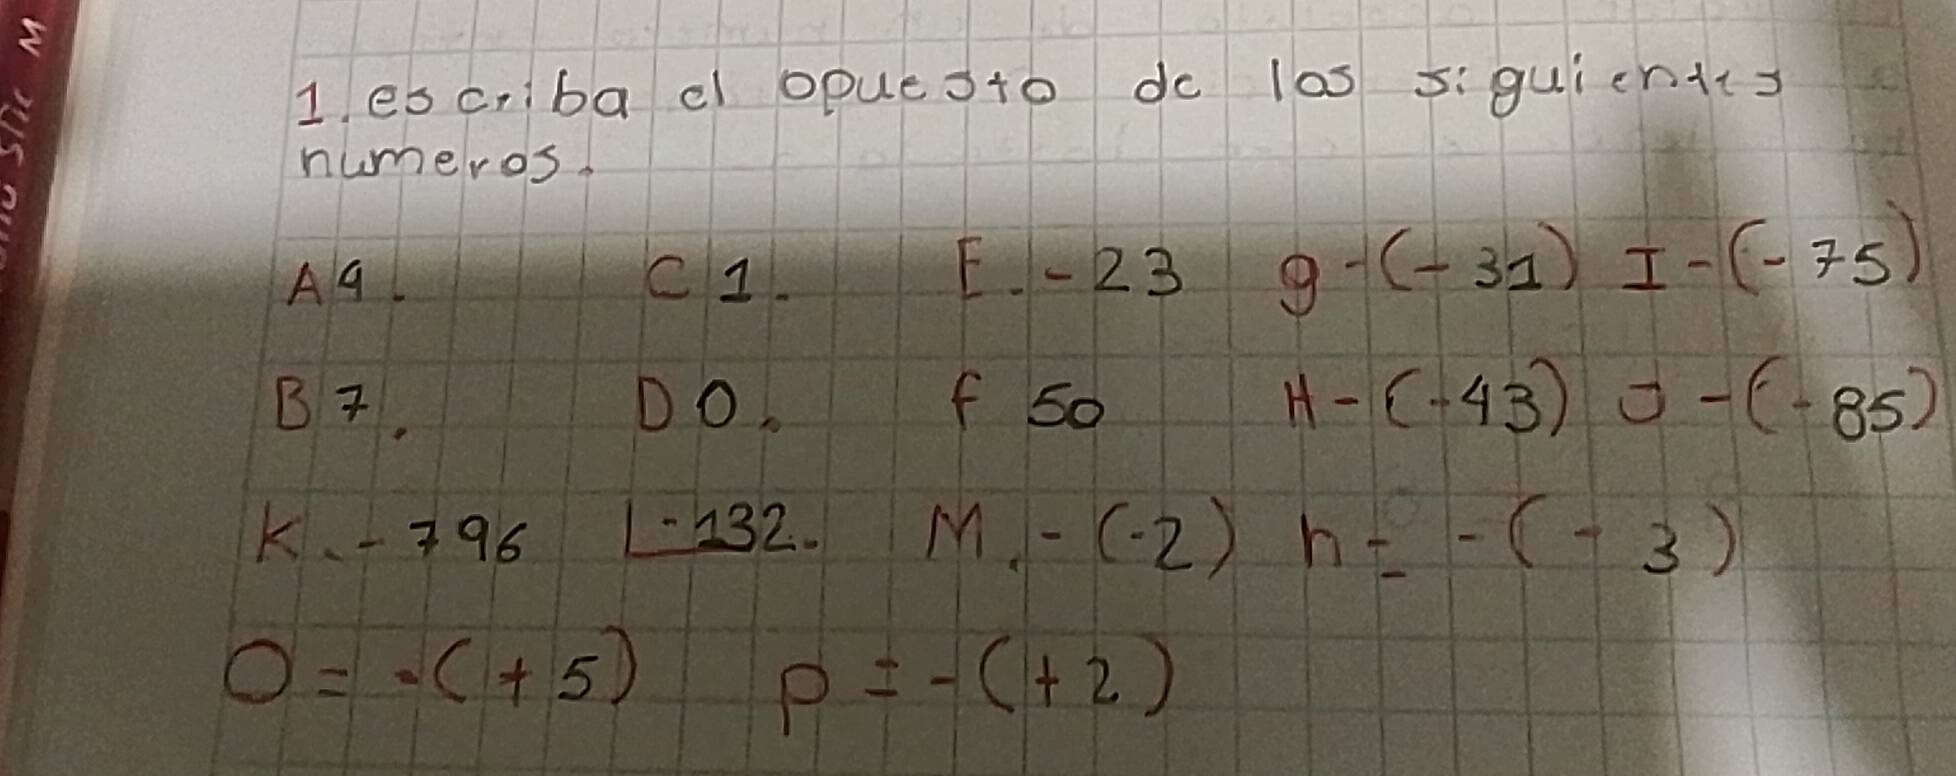 1. escriba el opuesto de los siguientes
numeros.
A 9. C 1. E. -23 g -(-31) I -(-75)
B 7. D 0. f 50 H -(-43) J -(-85)
K. -796 L -132. M. -(-2) n = -(-3)
O = -(+5) p = -(+2)